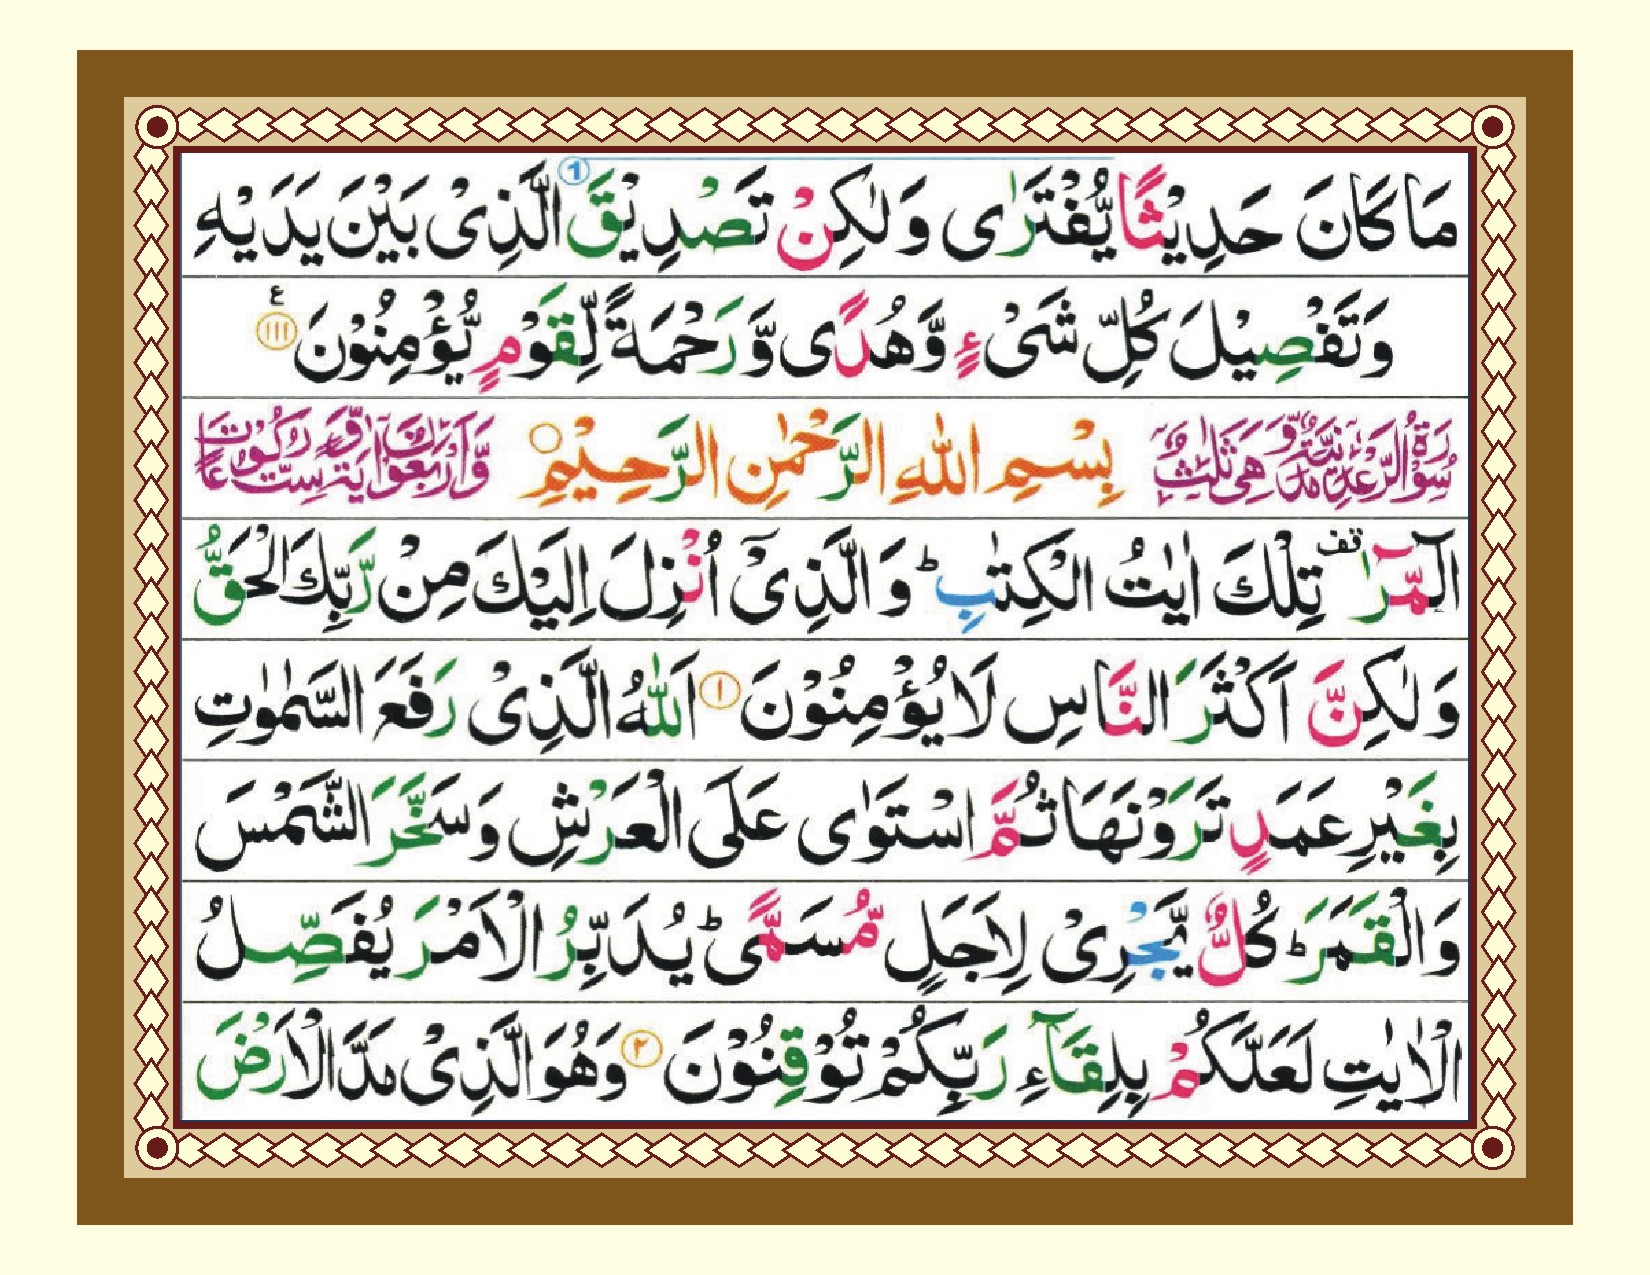 مَا كَانَ حَدِيْثًا يُّفْتَرٰى وَلٰكِنْ تَصْدِيْقَ الَّذِىْ بَيْنَ يَدَيْهِ
وَتَفْصِيْلَ كُلِّ شَىْءٍ وَّهُدًى وَّرَحْمَةً لِّقَوْمٍ يُّؤْمِنُوْنَ ﴿١١١﴾ ع
سُوْرَةُ الرَّعْدِ مَدَنِيَّةٌ وَّهِىَ ثَلٰثٌ بِسْمِ اللّٰهِ الرَّحْمٰنِ الرَّحِيْمِ وَّاَرْبَعُوْنَ اٰيَةً وَّسِتُّ رُكُوْعَاتٍ
الٓمّٓرٰ تف تِلْكَ اٰيٰتُ الْكِتٰبِ ؕ وَالَّذِىْۤ اُنْزِلَ اِلَيْكَ مِنْ رَّبِّكَ الْحَقُّ
وَلٰكِنَّ اَكْثَرَ النَّاسِ لَا يُؤْمِنُوْنَ ﴿١﴾ اَللّٰهُ الَّذِىْ رَفَعَ السَّمٰوٰتِ
بِغَيْرِ عَمَدٍ تَرَوْنَهَا ثُمَّ اسْتَوٰى عَلَى الْعَرْشِ وَسَخَّرَ الشَّمْسَ
وَالْقَمَرَ ؕ كُلٌّ يَّجْرِىْ لِاَجَلٍ مُّسَمًّى ؕ يُدَبِّرُ الْاَمْرَ يُفَصِّلُ
الْاٰيٰتِ لَعَلَّكُمْ بِلِقَآءِ رَبِّكُمْ تُوْقِنُوْنَ ﴿٢﴾ وَهُوَ الَّذِىْ مَدَّ الْاَرْضَ